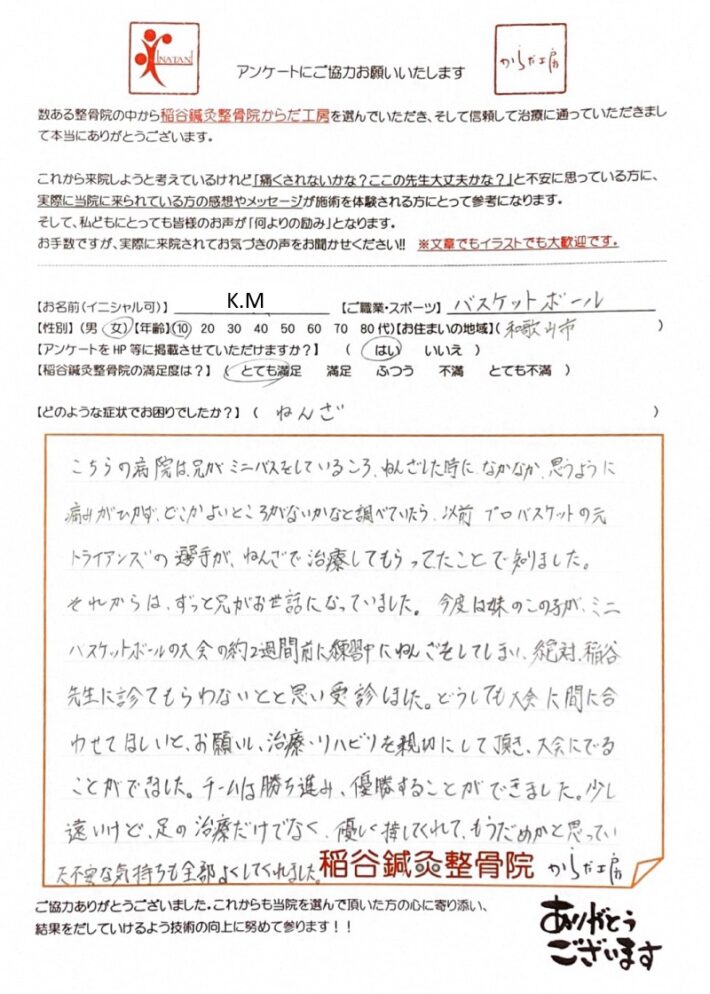 INATANI
アンケートにご協力お願いいたします
からだ工房
数ある整骨院の中から稲谷鍼灸整骨院からだ工房を選んでいただき、そして信頼して治療に通っていただきまし
て本当にありがとうございます。
これから来院しようと考えているけれど「痛くされないかな？ここの先生大丈夫かな？」と不安に思っている方に、
実際に当院に来られている方の感想やメッセージが施術を体験される方にとって参考になります。
そして、私どもにとっても皆様のお声が「何よりの励み」となります。
お手数ですが、実際に来院されてお気づきの声をお聞かせください!! ※文章でもイラストでも大歓迎です。
【お名前(イニシャル可)】 K.M 【ご職業・スポーツ】 バスケットボール
【性別】(男 女)【年齢】(10 20 30 40 50 60 70 80代)【お住まいの地域】( 和歌山市 )
【アンケートをHP等に掲載させていただけますか？】 ( はい いいえ )
【稲谷鍼灸整骨院の満足度は？】 ( とても満足 満足 ふつう 不満 とても不満 )
【どのような症状でお困りでしたか？】 ( ねんざ )
こちらの病院は、兄がミニバスをしているころ、ねんざした時に、なかなか、思うように
痛みがひかず、どこかよいところがないかなと調べていたら、以前プロバスケットの元
トライアンズの選手が、ねんざで治療してもらってたことで知りました。
それからは、ずっと兄がお世話になっていました。今度は妹のこの子が、ミニ
バスケットボールの大会の約2週間前に練習中にねんざをしてしまい、絶対、稲谷
先生に診てもらわないとと思い受診しました。どうしても大会に間に合
わせてほしいと、お願いし、治療・リハビリを親切にして頂き、大会にでる
ことができました。チームは勝ち進み、優勝することができました。少し
遠いけど、足の治療だけでなく、優しく接してくれて、もうだめかと思ってい
た不安な気持ちも全部よくしてくれました。
稲谷鍼灸整骨院 からだ工房
ご協力ありがとうございました。これからも当院を選んで頂いた方の心に寄り添い、
結果をだしていけるよう技術の向上に努めて参ります！！
ありがとう
ございます